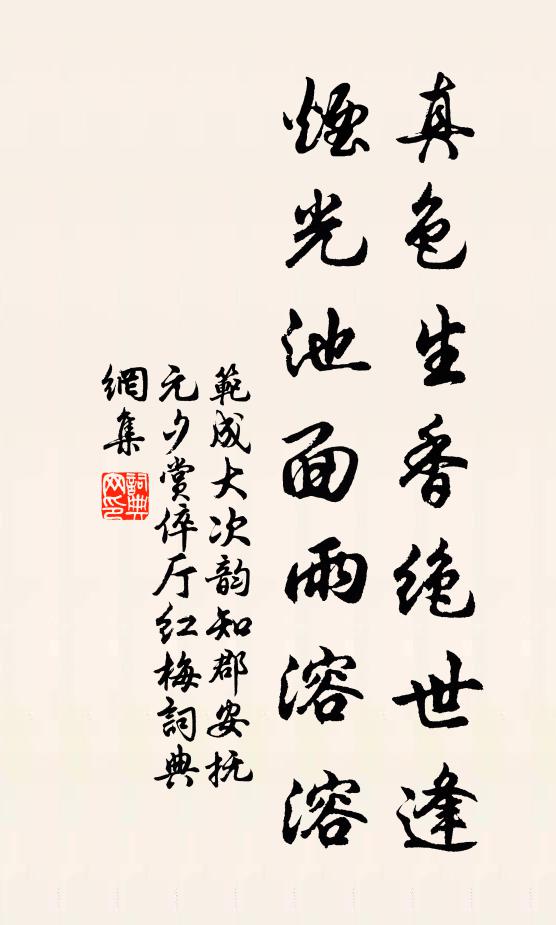 真色生香绝世逢
煙光池面雨溶溶
範成大次韵知郡安抚
元夕赏倅厅红梅詞典
網集
詞典
网印